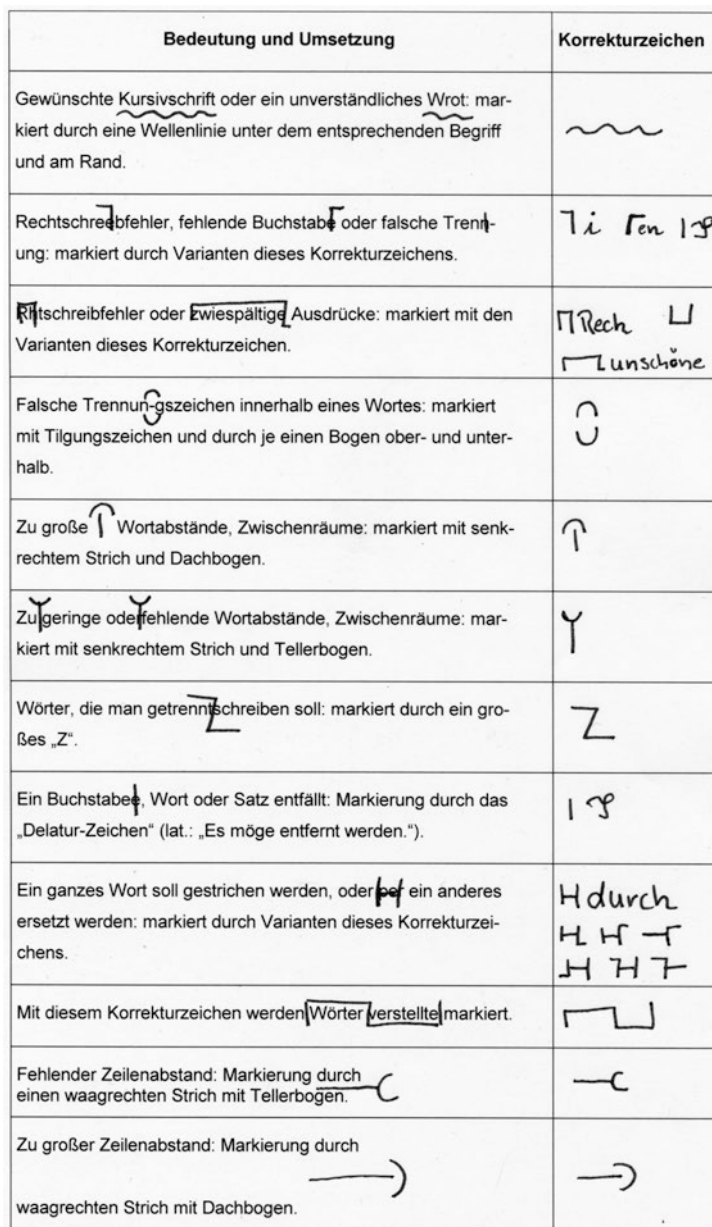 Bedeutung und Umsetzung
Korrekturzeichen
Gewünschte Kursivschrift oder ein unverständliches Wrot: mar-
kiert durch eine Wellenlinie unter dem entsprechenden Begriff
und am Rand.
Rechtschreebfehler, fehlende Buchstabe oder falsche Trenn-
ung: markiert durch Varianten dieses Korrekturzeichens.
i en
Rhtschreibfehler oder zwiespältige Ausdrücke: markiert mit den
Varianten dieses Korrekturzeichen.
Rech
unschöne
Falsche Trennun-gszeichen innerhalb eines Wortes: markiert
mit Tilgungszeichen und durch je einen Bogen ober- und unter-
halb.
Zu große Wortabstände, Zwischenräume: markiert mit senk-
rechtem Strich und Dachbogen.
Zu geringe oderfehlende Wortabstände, Zwischenräume: mar-
kiert mit senkrechtem Strich und Tellerbogen.
Wörter, die man getrenntschreiben soll: markiert durch ein gro-
ßes „Z“.
Z
Ein Buchstabee, Wort oder Satz entfällt: Markierung durch das
„Delatur-Zeichen“ (lat.: „Es möge entfernt werden.“).
Ein ganzes Wort soll gestrichen werden, oder per ein anderes
ersetzt werden: markiert durch Varianten dieses Korrekturzei-
chens.
durch
Mit diesem Korrekturzeichen werden Wörter verstellte markiert.
Fehlender Zeilenabstand: Markierung durch
einen waagrechten Strich mit Tellerbogen.
Zu großer Zeilenabstand: Markierung durch
waagrechten Strich mit Dachbogen.